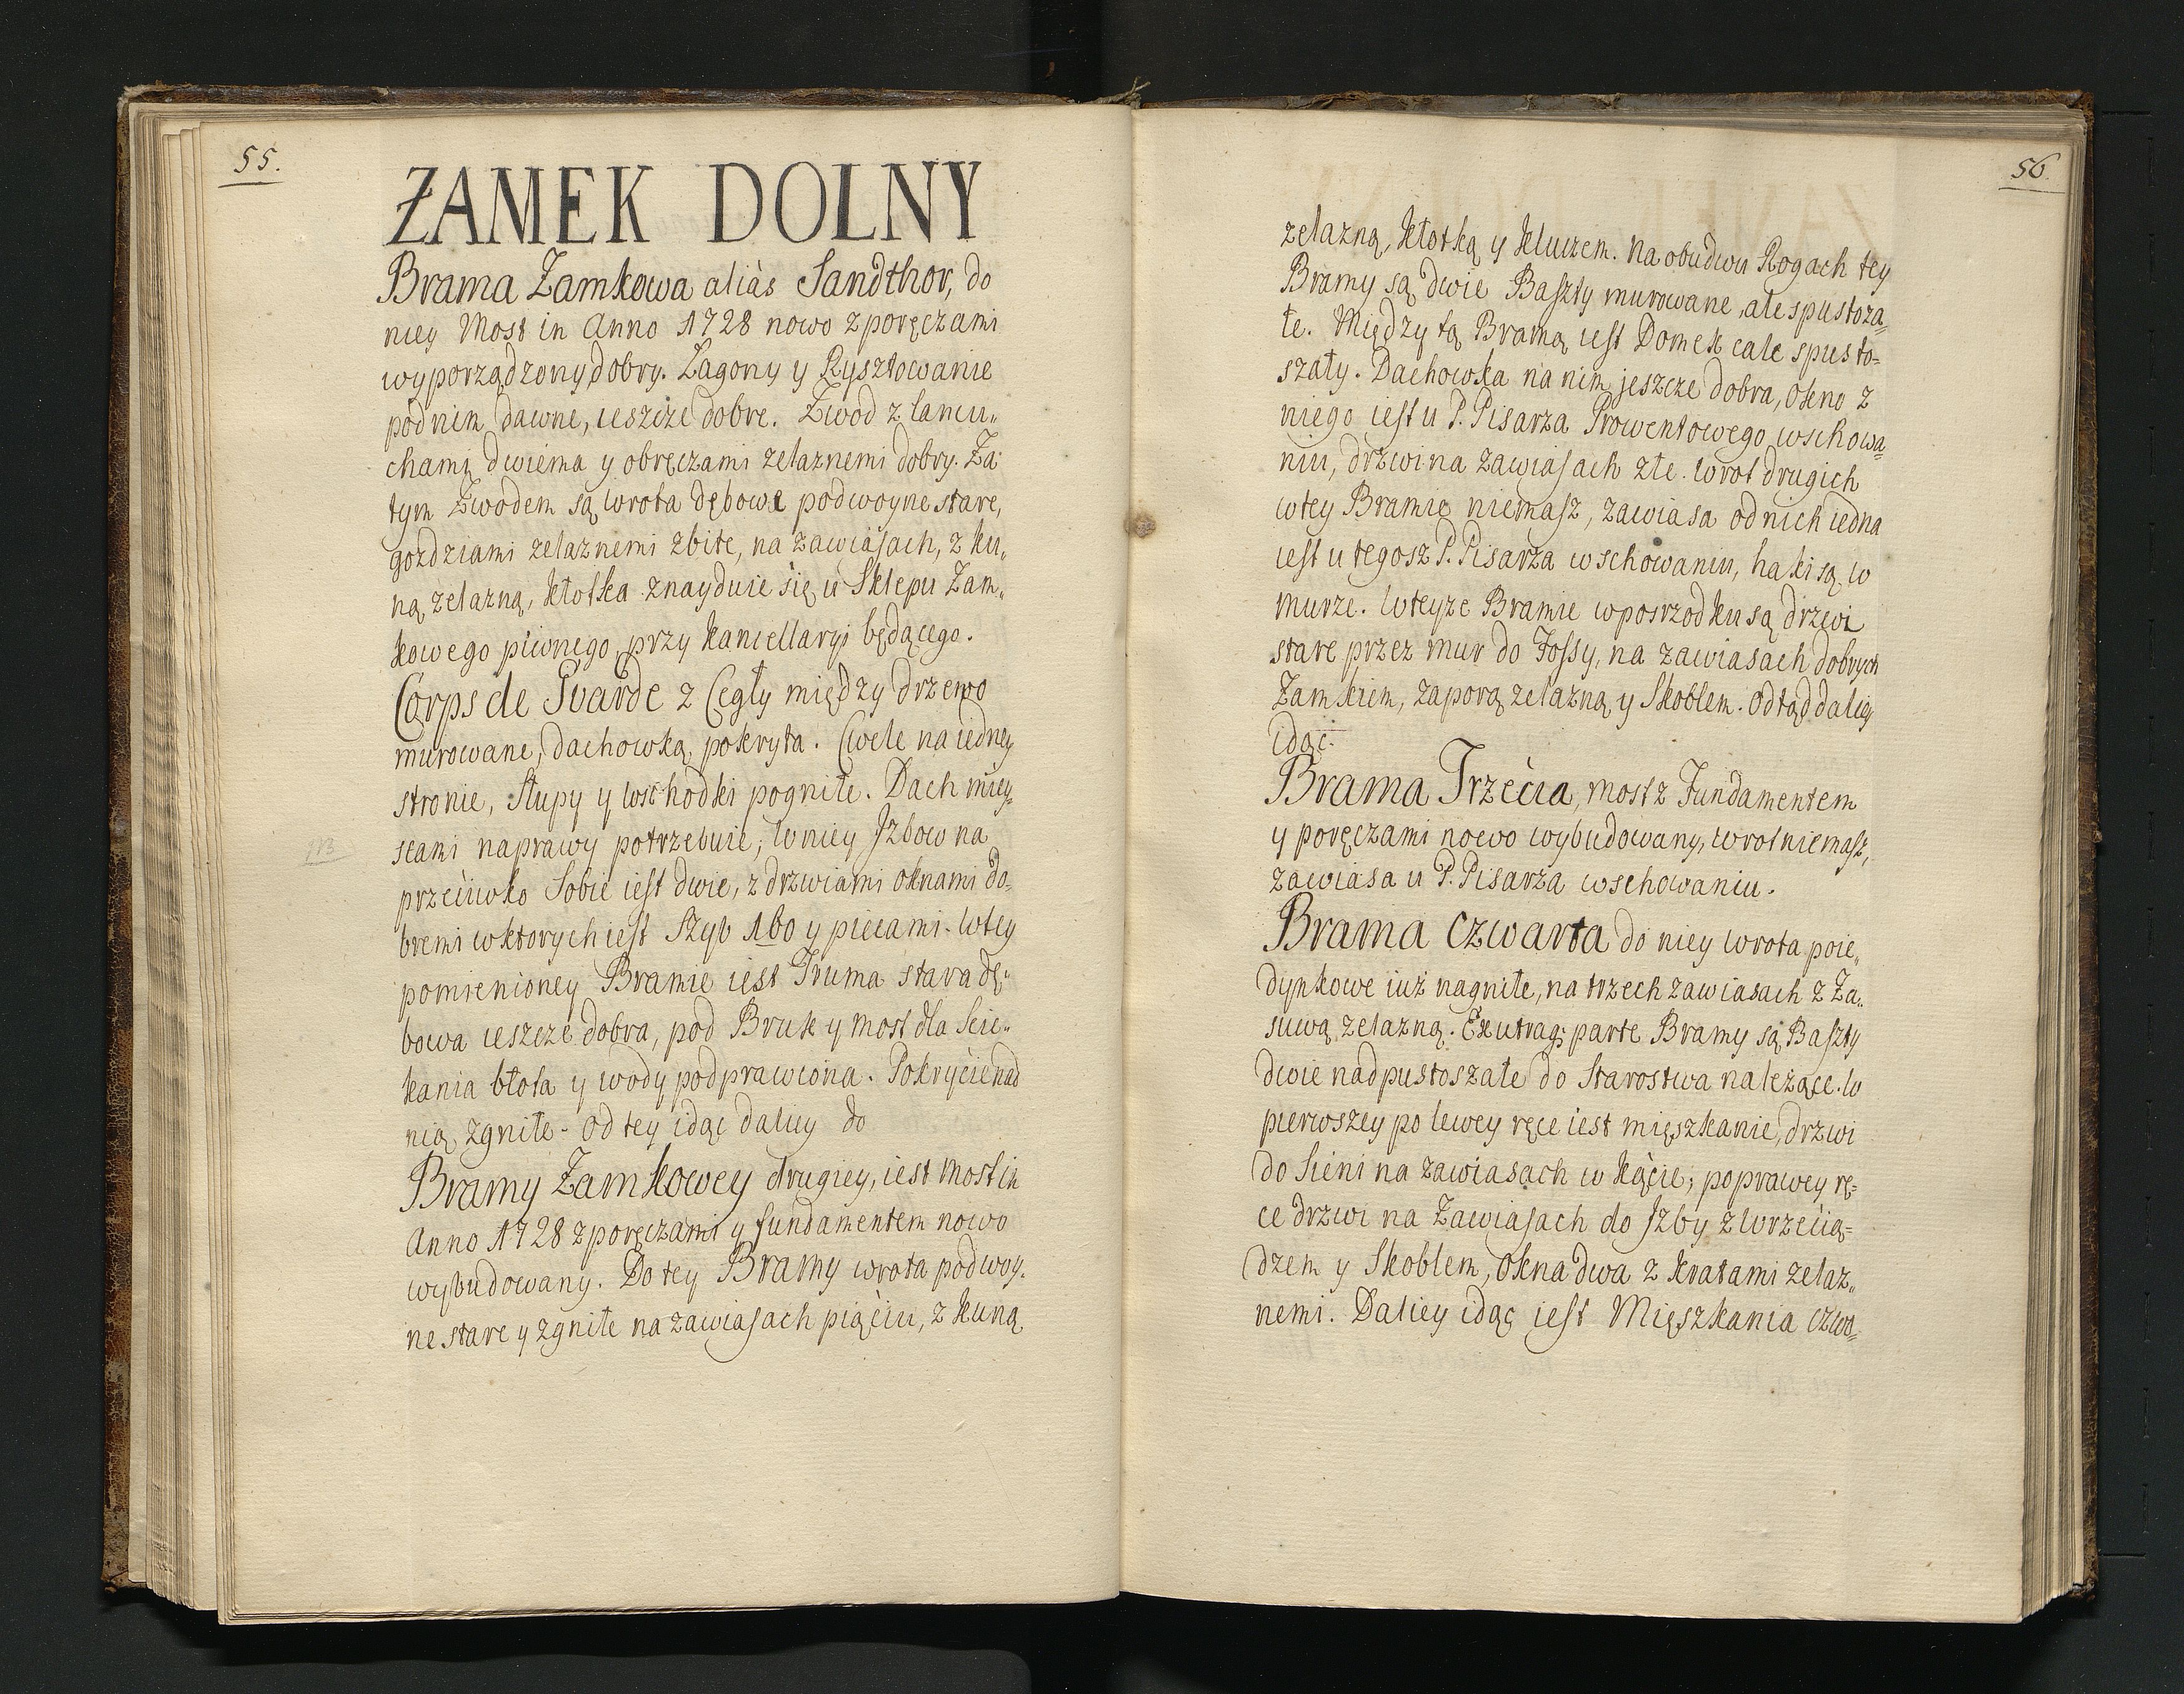 55.
ZAMEK DOLNY
Brama Zamkowa aliàs Sandthor, do
niey Most in Anno 1728 nowo z poręczami
wyporządzony dobry. Zagony y Rysztowanie
pod nim dawne, ieszcze dobre. Zwod z lancu„
chami dwiema y obręczami zelaznemi dobry. Za
tym Zwodem są wrota dębowe podwoyne stare,
gozdziami zelaznemi zbite, na zawiasach, z ku„
ną zelazną, kłotka znayduie się u Sklepu Zam„
kowego piwnego, przy kancellaryi będącego.
Corps de Gvarde z Cegły między drzewo
murowane, dachowką pokryta. Cwele na iedney
stronie, słupy y wschodki pogniłe. Dach miey„
scami naprawy potrzebuie; w niey Jzbow na
przeciwko Sobie iest dwie, z drzwiami oknami do„
bremi w ktorych iest Szyb 160 y piecami. w tey
pomienioney Bramie iest Truma stara dę„
bowa ieszcze dobra, pod Bruk y most dla Scie„
kania błota y wody podprawiona. Pokrycie nad
nią zgniłe. Od tey idąc daliey do
Bramy Zamkowey drugiey, iest most in
Anno 1728 z poręczami y fundamentem nowo
wybudowany. Do tey Bramy wrota podwoy„
ne stare y zgniłe na zawiasach piąciu, z kuną
56.
zelazną, kłotką y kluczem. Na obudwu Rogach tey
Bramy są dwie Baszty murowane, ale spustoza„
łe. Między tą Bramą iest Domek cale spusto„
szały. Dachowka na nim jeszcze dobra, okno z
niego iest u P. Pisarza Prowentowego w schowa„
niu, drzwi na zawiasach złe. wrot drugich
w tey Bramie niemasz, zawiasa od nich iedna
iest u tegosz P. Pisarza w schowaniu, haki są w
murze. w teyze Bramie w posrzodku są drzwi
stare przez mur do Fossy, na zawiasach dobrych
Zamkiem, zaporą zelazną y Skoblem. Odtąd daliey
idąc.
Brama Trzecia, most z Fundamentem
y poręczami nowo wybudowany, wrot niemasz,
zawiasa u P. Pisarza w schowaniu.
Brama Czwarta do niey wrota poie„
dynkowe iuż nagniłe, na trzech zawiasach z Za„
suwą zelazną. Ex utraq; parte Bramy są Baszty
dwie nadpustoszałe do Starostwa należące. w
pierwszey po lewey ręce iest mięszkanie, drzwi
do Sieni na zawiasach w kącie; po prawey rę„
ce drzwi na Zawiasach do Jzby z Wrzecią„
dzem y Skoblem, okna dwa z kratami zelaz„
nemi. Daliey idąc iest Mięszkania czwo„